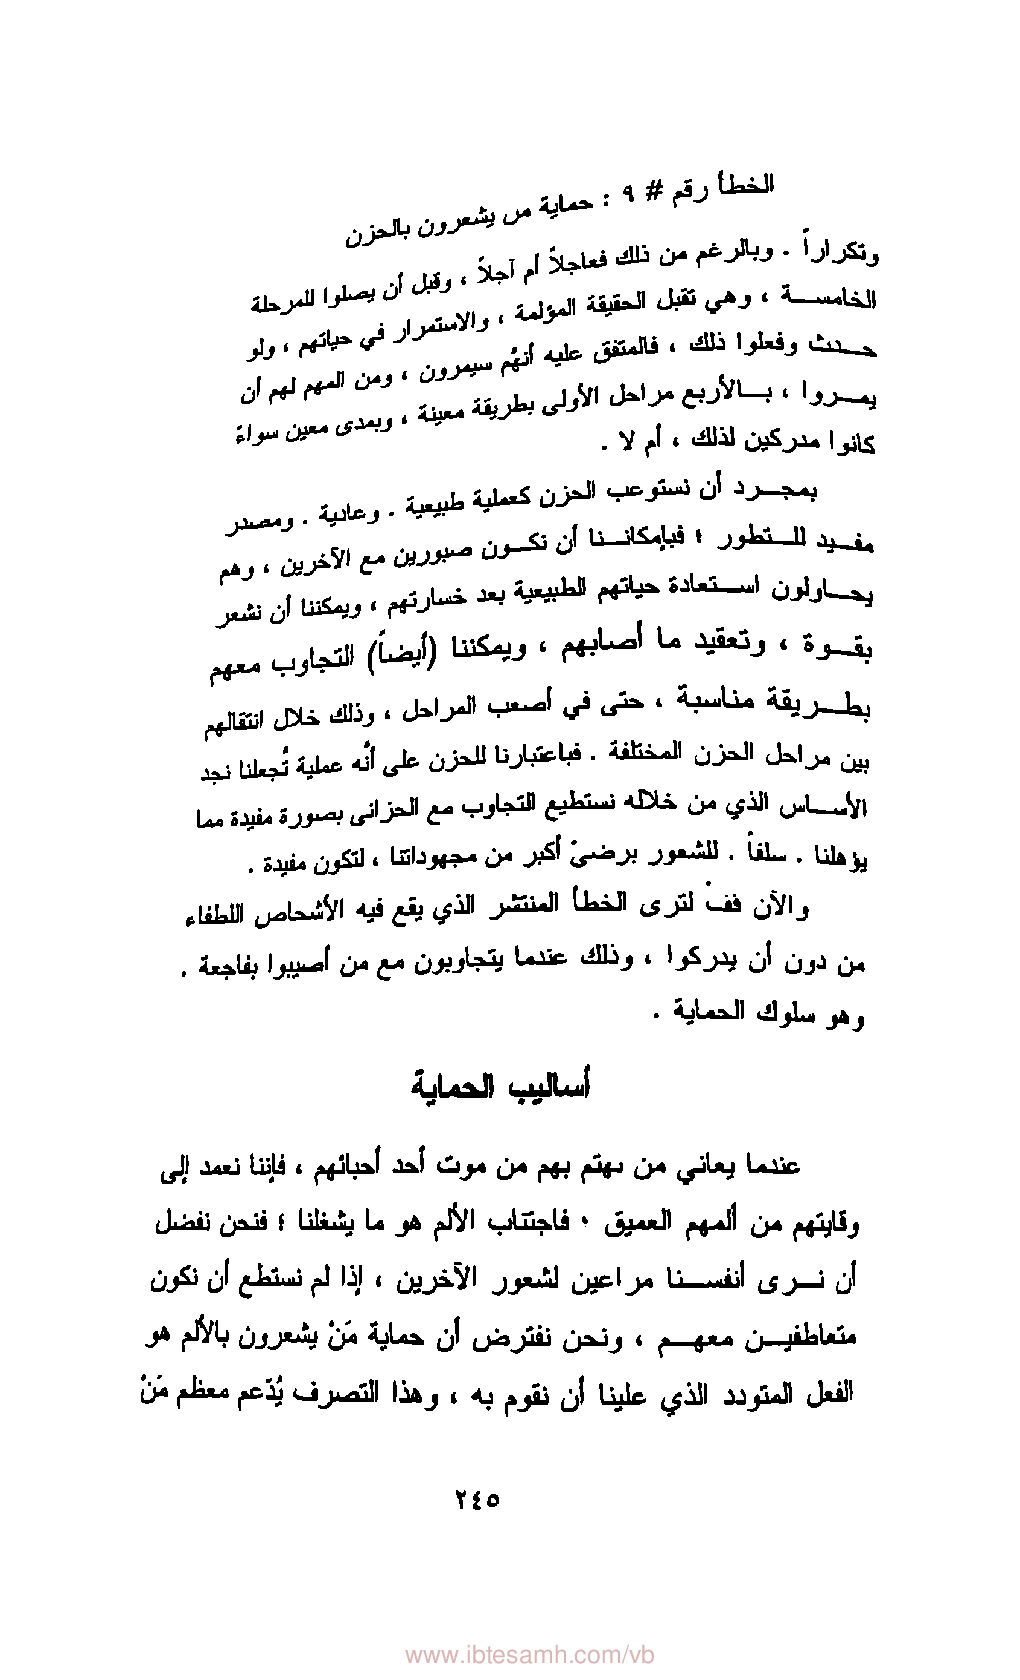 الخطأ رقم # ٩ : حماية من يشعرون بالحزن
وتكراراً . وبالرغم من ذلك فعاجلاً أم آجلاً ، وقبل أن يصلوا للمرحلة
الخامسة ، وهي تقبل الحقيقة المؤلمة ، والاستمرار في حياتهم ، ولو
حدث وفعلوا ذلك ، فالمتفق عليه أنهُم سيمرون ، ومن المهم لهم أن
يمروا ، بالأربع مراحل الأولى بطريقة معينة ، وبمدى معين سواءً
كانوا مدركين لذلك ، أم لا .
بمجرد أن نستوعب الحزن كعملية طبيعية . وعادية . ومصدر
مفيد للتطور ؛ فبإمكاننا أن نكون صبورين مع الآخرين ، وهم
يحاولون استعادة حياتهم الطبيعية بعد خسارتهم ، ويمكننا أن نشعر
بقوة ، وتعقيد ما أصابهم ، ويمكننا (أيضاً) التجاوب معهم
بطريقة مناسبة ، حتى في أصعب المراحل ، وذلك خلال انتقالهم
بين مراحل الحزن المختلفة . فباعتبارنا للحزن على أنَّه عملية تُجعلنا نجد
الأساس الذي من خلاله نستطيع التجاوب مع الحزانى بصورة مفيدة مما
يؤهلنا . سلفاً . للشعور برضىً أكبر من مجهوداتنا ، لتكون مفيدة .
والآن قفْ لترى الخطأ المنتشر الذي يقع فيه الأشخاص اللطفاء
من دون أن يدركوا ، وذلك عندما يتجاوبون مع من أصيبوا بفاجعة .
وهو سلوك الحماية .
أساليب الحماية
عندما يعاني من نهتم بهم من موت أحد أحبائهم ، فإننا نعمد إلى
وقايتهم من ألمهم العميق ، فاجتناب الألم هو ما يشغلنا ؛ فنحن نفضل
أن نرى أنفسنا مراعين لشعور الآخرين ، إذا لم نستطع أن نكون
متعاطفين معهم ، ونحن نفترض أن حماية مَنْ يشعرون بالألم هو
الفعل المتودد الذي علينا أن نقوم به ، وهذا التصرف يُدّعم معظم مَنْ
٢٤٥
www.ibtesamh.com/vb